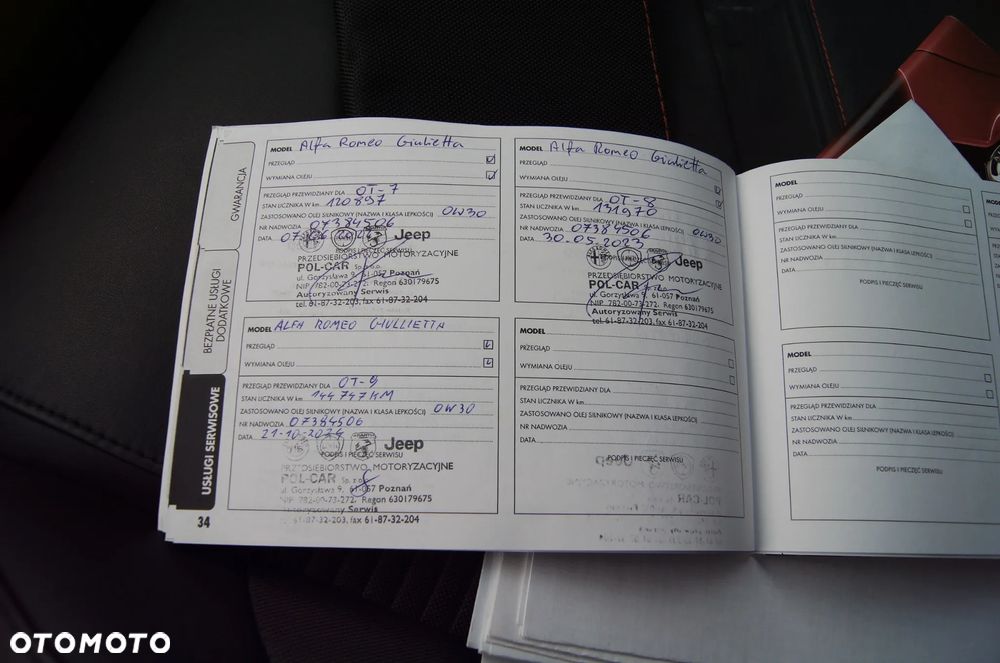 MODEL Alfa Romeo Giulietta
PRZEGLĄD
WYMIANA OLEJU
PRZEGLĄD PRZEWIDZIANY DLA OT-7
STAN LICZNIKA W km 120897
ZASTOSOWANO OLEJ SILNIKOWY (NAZWA I KLASA LEPKOŚCI) 0W30
NR NADWOZIA 07384506
DATA
Jeep
PODPIS I PIECZĘĆ SERWISU
PRZEDSIĘBIORSTWO MOTORYZACYJNE
POL-CAR Sp. z o.o.
ul. Gorzysława 9, 61-057 Poznań
NIP 782-00-73-272, Regon 630179675
Autoryzowany Serwis
tel. 61-87-32-203, fax 61-87-32-204
MODEL Alfa Romeo Giulietta
PRZEGLĄD
WYMIANA OLEJU
PRZEGLĄD PRZEWIDZIANY DLA OT-8
STAN LICZNIKA W km 131970
ZASTOSOWANO OLEJ SILNIKOWY (NAZWA I KLASA LEPKOŚCI) 0W30
NR NADWOZIA 07384506
DATA 30.05.2023
Jeep
PRZEDSIĘBIORSTWO MOTORYZACYJNE
POL-CAR
ul. Gorzysława 9, 61-057 Poznań
NIP 782-00-73-272, Regon 630179675
Autoryzowany Serwis
tel. 61-87-32-203, fax 61-87-32-204
MODEL ALFA ROMEO GIULLIETTA
PRZEGLĄD
WYMIANA OLEJU
PRZEGLĄD PRZEWIDZIANY DLA OT-9
STAN LICZNIKA W km 144747KM
ZASTOSOWANO OLEJ SILNIKOWY (NAZWA I KLASA LEPKOŚCI) 0W30
NR NADWOZIA 07384506
DATA 21-10-2024
Jeep
PODPIS I PIECZĘĆ SERWISU
PRZEDSIĘBIORSTWO MOTORYZACYJNE
POL-CAR Sp. z o.o.
ul. Gorzysława 9, 61-057 Poznań
NIP 782-00-73-272, Regon 630179675
Autoryzowany Serwis
tel. 61-87-32-203, fax 61-87-32-204
MODEL
PRZEGLĄD
WYMIANA OLEJU
PRZEGLĄD PRZEWIDZIANY DLA
STAN LICZNIKA W km
ZASTOSOWANO OLEJ SILNIKOWY (NAZWA I KLASA LEPKOŚCI)
NR NADWOZIA
DATA
PODPIS I PIECZĘĆ SERWISU
GWARANCJA
BEZPŁATNE USŁUGI
DODATKOWE
USŁUGI SERWISOWE
34
MODEL
PRZEGLĄD
WYMIANA OLEJU
PRZEGLĄD PRZEWIDZIANY DLA
STAN LICZNIKA W km
ZASTOSOWANO OLEJ SILNIKOWY (NAZWA I KLASA LEPKOŚCI)
NR NADWOZIA
DATA
PODPIS I PIECZĘĆ SERWISU
MODEL
PRZEGLĄD
WYMIANA OLEJU
PRZEGLĄD PRZEWIDZIANY DLA
STAN LICZNIKA W km
ZASTOSOWANO OLEJ SILNIKOWY (NAZWA I KLASA LEPKOŚCI)
NR NADWOZIA
DATA
PODPIS I PIECZĘĆ SERWISU
OTOMOTO